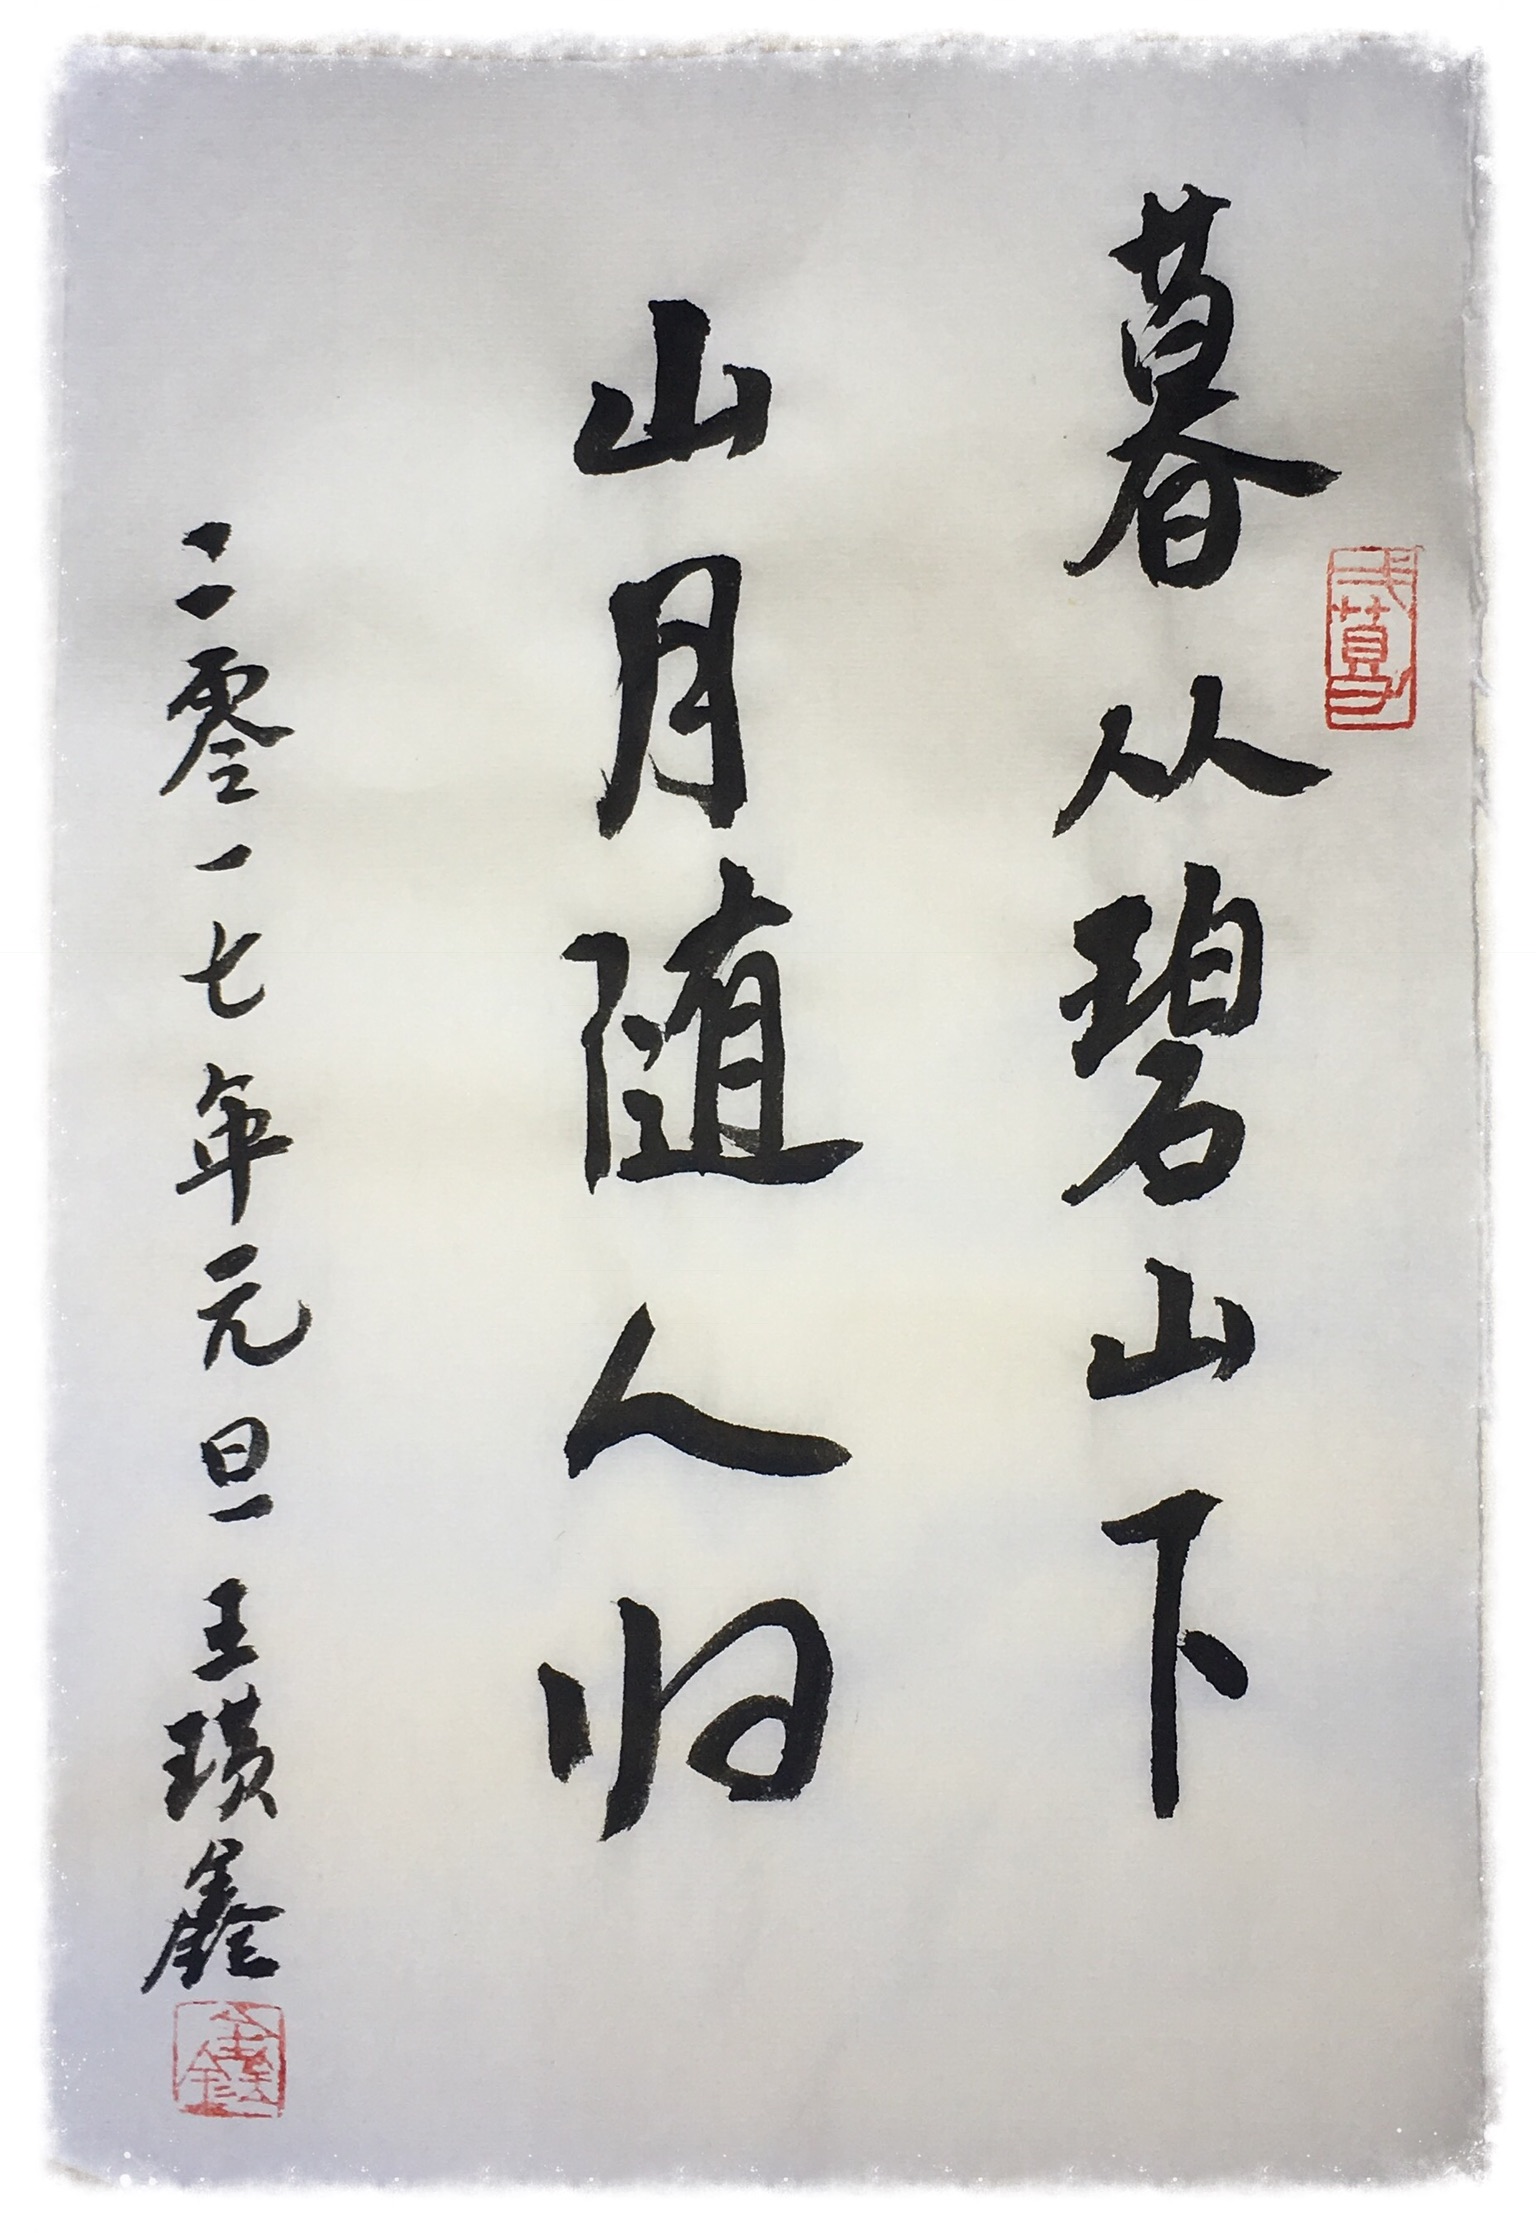 暮从碧山下
山月随人归
二零一七年元旦王璜鑫
鑫